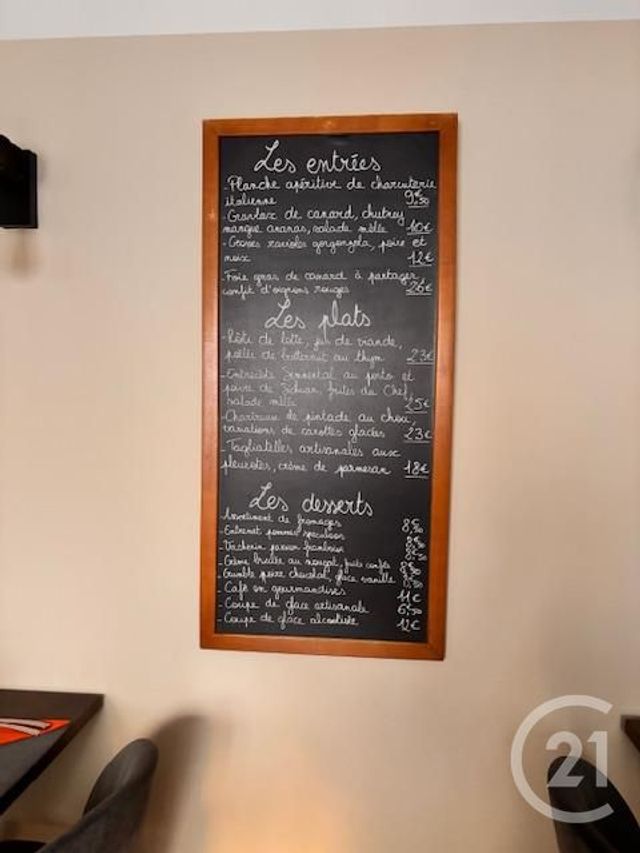 Les entrées
- Planche apéritive de charcuterie
italienne 9€50
- Gravlax de canard, chutney
mangue ananas, salade mêlée 10€
- Grosses ravioles gorgonzola, poire et
noix 12€
- Foie gras de canard à partager,
confit d'oignons rouges 26€
Les plats
- Rôti de lotte, jus de viande,
poêlée de butternut au thym 23€
- Entrecôte Simmental au porto et
poivre de Sichuan, frites du Chef,
salade mêlée 25€
- Chartreuse de pintade au chou,
variations de carottes glacées 23€
- Tagliatelles artisanales aux
pleurotes, crème de parmesan 18€
Les desserts
- Assortiment de fromages 8€50
- Entremet pommes speculoos
- Vacherin passion framboise
- Crème brulée au nougat, fruits confits
- Crumble poire chocolat, glace vanille
- Café en gourmandises 11€
- Coupe de glace artisanale 6,50
- Coupe de glace alcoolisée 12€
C21